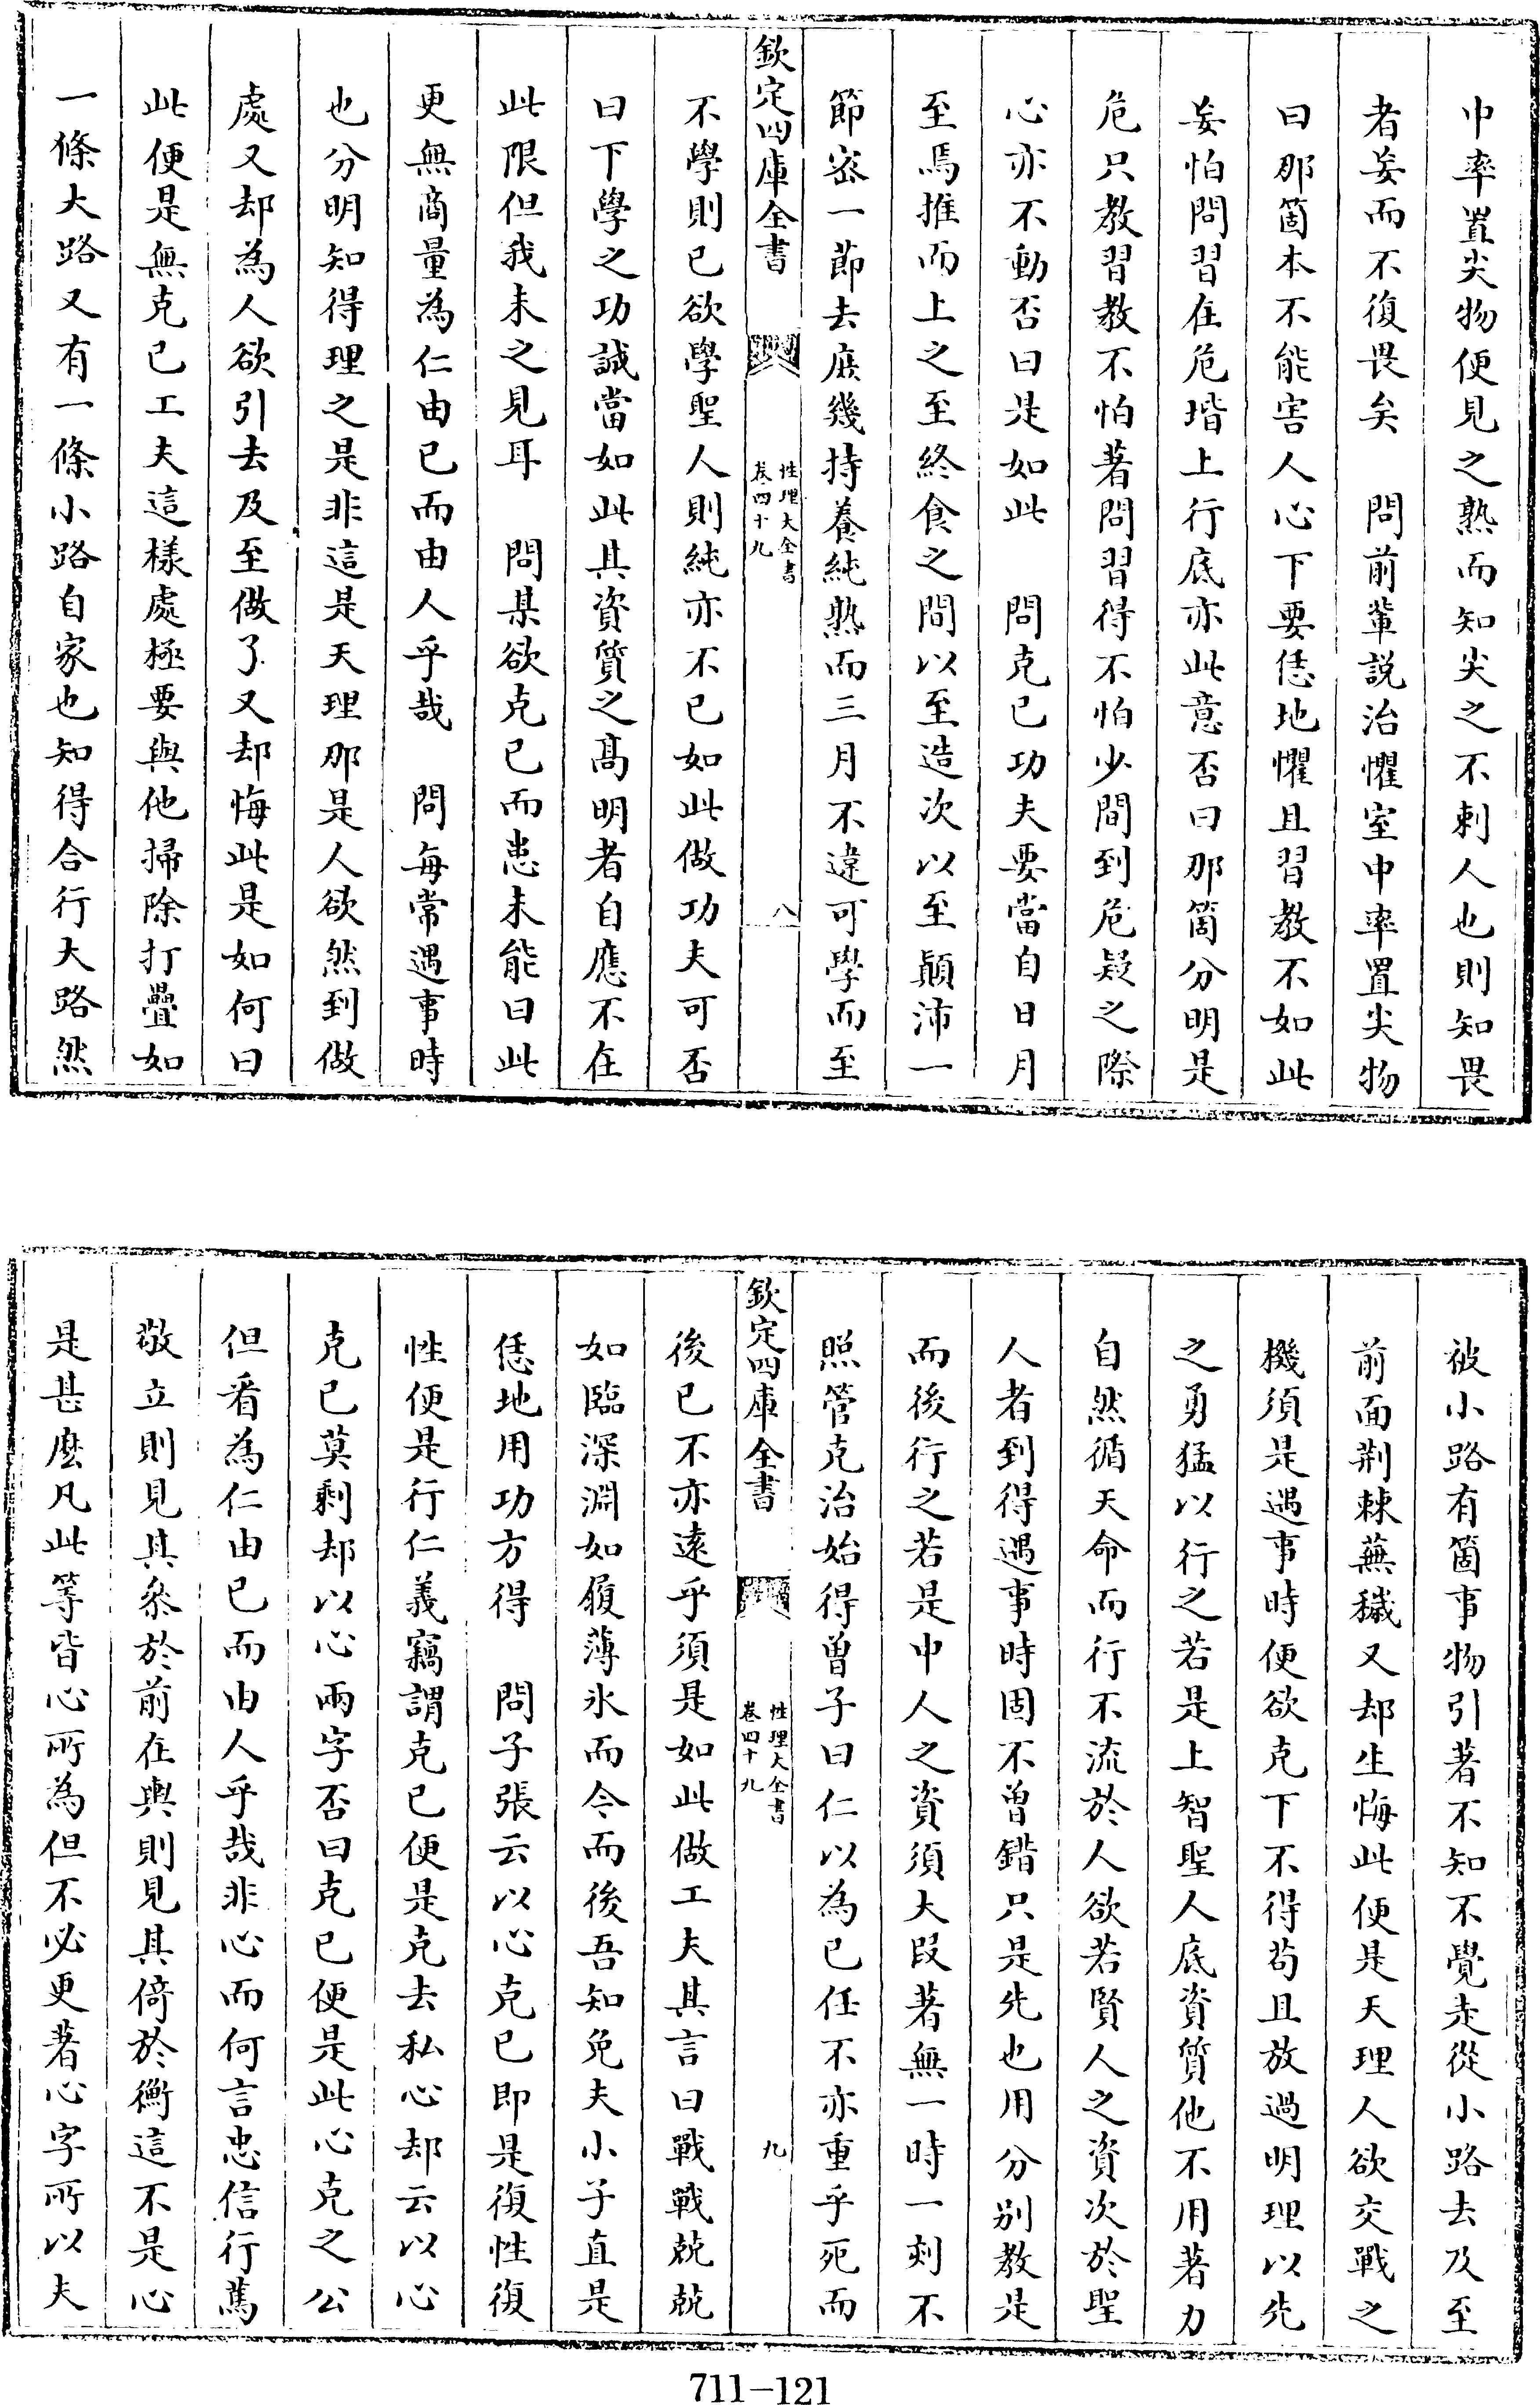 中率置尖物便見之熟而知尖之不刺人也則知畏
者妄而不復畏矣　問前輩説治懼室中率置尖物
曰那箇本不能害人心下要恁地懼且習教不如此
妄怕問習在危堦上行底亦此意否曰那箇分明是
危只教習教不怕著問習得不怕少間到危疑之際
心亦不動否曰是如此　問克已功夫要當自日月
至焉推而上之至終食之間以至造次以至顛沛一
節宻一節去庶幾持養純熟而三月不違可學而至
欽定四庫全書
性理大全書
卷四十九
八
不學則已欲學聖人則純亦不已如此做功夫可否
曰下學之功誠當如此其資質之髙明者自應不在
此限但我未之見耳　問某欲克已而患未能曰此
更無商量為仁由已而由人乎哉　問每常遇事時
也分明知得理之是非這是天理那是人欲然到做
處又却為人欲引去及至做了又却悔此是如何曰
此便是無克已工夫這様處極要與他掃除打疊如
一條大路又有一條小路自家也知得合行大路然
被小路有箇事物引著不知不覺走從小路去及至
前面荆棘蕪穢又却生悔此便是天理人欲交戰之
機須是遇事時便欲克下不得苟且放過明理以先
之勇猛以行之若是上智聖人底資質他不用著力
自然循天命而行不流於人欲若賢人之資次於聖
人者到得遇事時固不曽錯只是先也用分别教是
而後行之若是中人之資須大叚著無一時一刻不
照管克治始得曽子曰仁以為已任不亦重乎死而
欽定四庫全書
性理大全書
卷四十九
九
後已不亦逺乎須是如此做工夫其言曰戰戰兢兢
如臨深淵如履薄氷而今而後吾知免夫小子直是
恁地用功方得　問子張云以心克已即是復性復
性便是行仁義竊謂克已便是克去私心却云以心
克已莫剩却以心兩字否曰克已便是此心克之公
但看為仁由已而由人乎哉非心而何言忠信行篤
敬立則見其㕘於前在輿則見其倚於衡這不是心
是甚麽凡此等皆心所為但不必更著心字所以夫
711-121